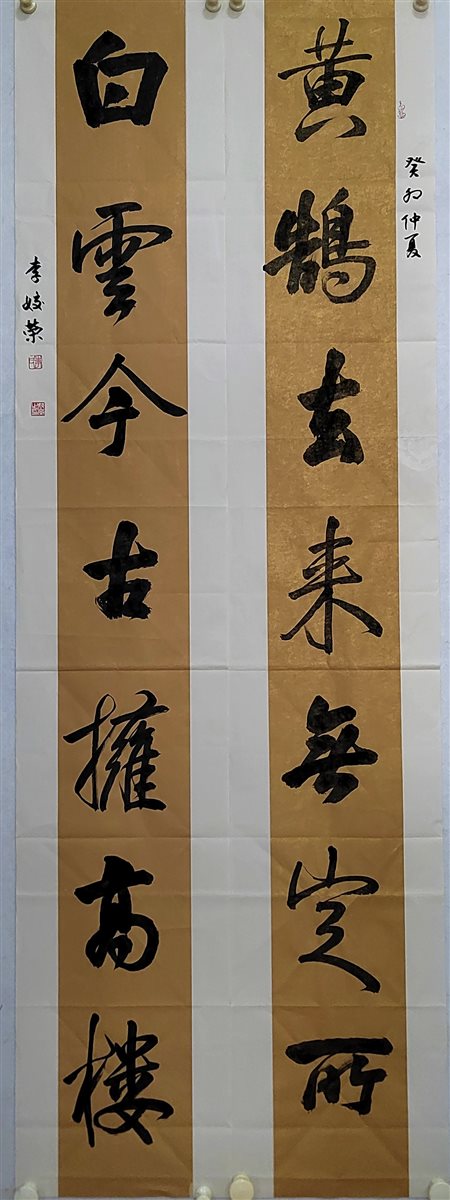 癸卯仲夏
黄鹤去来無定所
白雲今古擁高樓
李姣荣